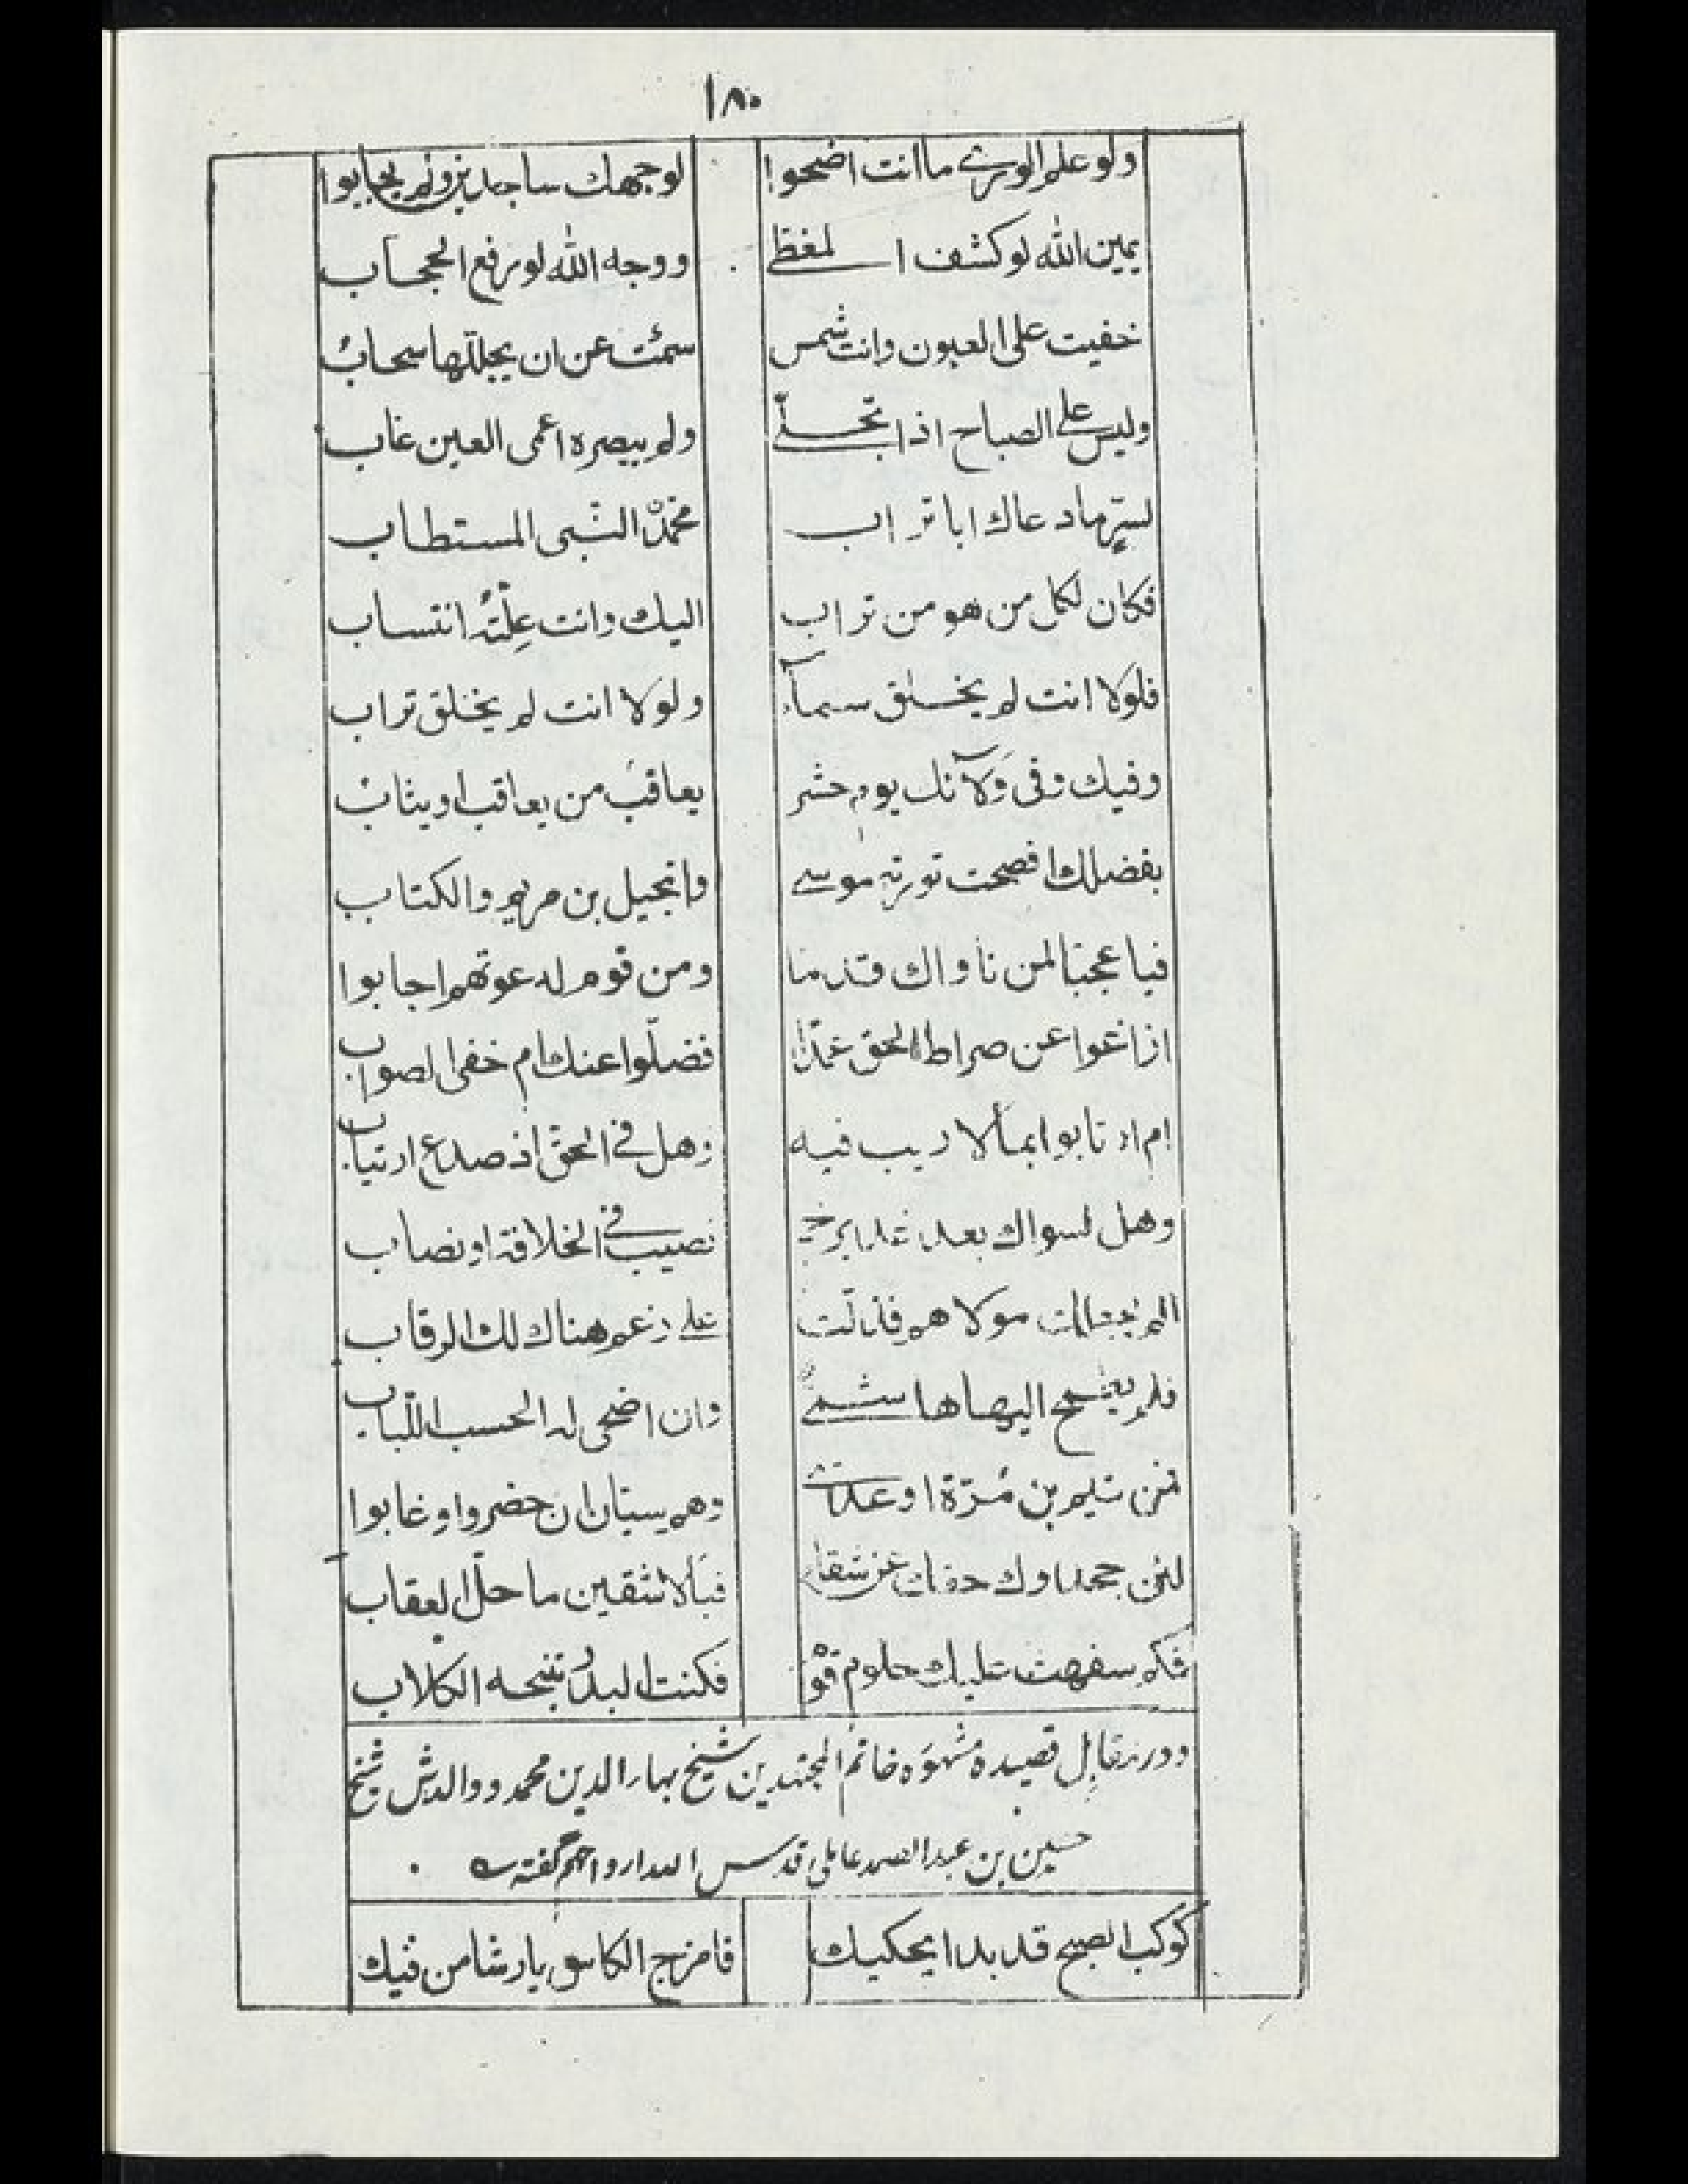 ١٨٠
ولو علم الورى ما انت اضحوا لوجهك ساجدين ولم يحابوا
يمين الله لو كشف المغطى ووجه الله لو رفع الحجاب
خفيت على العيون وانت شمس سمئت عن ان يجللها سحاب
وليس على الصباح اذا تجلى ولم يبصره اعمى العين عاب
لسر ما دعاك ابا تراب محمد النبى المستطاب
فكان لكل من هو من تراب اليك وانت علته انتساب
فلولا انت لم يخلق سمآء ولولا انت لم يخلق تراب
وفيك وفى ولآئك يوم حشر يعاقب من يعاقب او يثاب
بفضلك افصحت تورية موسى وانجيل بن مريم والكتاب
فيا عجبا لمن ناواك قدما ومن قوم لدعوتهم اجابوا
ازاغوا عن صراط الحق عمدا فضلوا عنك ام خفى الصواب
ام ارتابوا بما لا ريب فيه وهل فى الحق اذ صدع ارتياب
وهل لسواك بعد غدير خم نصيب فى الخلافة او نصاب
الم يجعلك مولاهم فذلت على رغم هناك لك الرقاب
فلم يطمح اليها هاشمى وان اضحى له الحسب اللباب
فمن تيم بن مرة او عدى وهم سيان ان حضروا وغابوا
لئن جحدوك حقك عن شقاء فبالاشقين ما حل العقاب
فكم سفهت عليك حلوم قوم فكنت البدر تنبحه الكلاب
ودر مقابل قصيده مشهوره خاتم المجتهدين شيخ بهاء الدين محمد ووالدش شيخ
حسين بن عبد الصمد عاملى قدس الله ارواحهم گفته
كوكب الصبح قد بدا يحكيك فامزج الكاس يا رشا من فيك